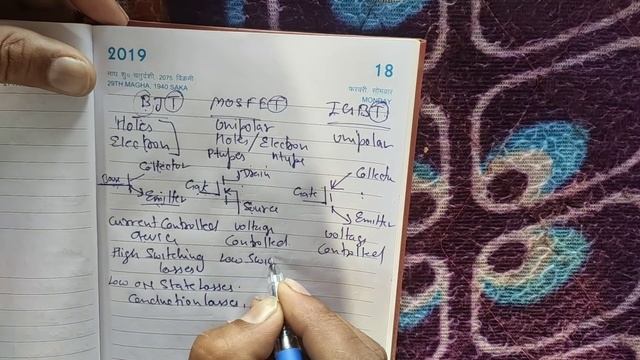 2019
माघ शु० चतुर्दशी, 2075 विक्रमी
29TH MAGHA, 1940 SAKA
18
फरवरी, सोमवार
MONDAY
BJT MOSFET IGBT
Holes Unipolar Unipolar
Electron Holes/Electron
Ptypes ntype
Collector Drain Collecto
Base Gate Gate
Emitter Source Emitter
Current Controlled voltage voltage
device Controlled Controlled
High Switching Low Swi
losses
Low ON State Losses.
Conduction losses.